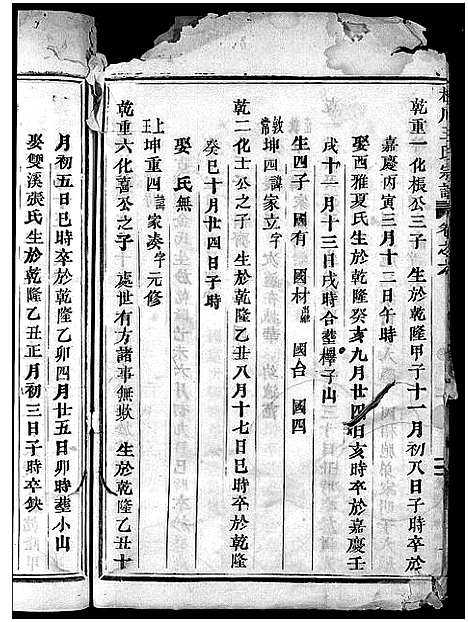 王氏宗譜
乾重一化棖公三子 生於乾隆甲子十一月初八日子時卒於
嘉慶丙寅三月十二日午時
娶酉雅夏氏生於乾隆癸亥九月廿四日亥時卒於嘉慶壬
戌十一月十三日戌時合塟櫸子山
生四子 家國有 國材出繼 國台 國四
坤四諱家立字敦常
乾二化士公之子 生於乾隆乙丑八月十七日巳時卒於乾隆
癸巳十月廿四日子時
娶 氏無
上王坤重四諱家湊字元修
乾重六化喜公之子 處世有方諸事無欺 生於乾隆乙丑十
月初五日巳時卒於乾隆乙卯四月廿五日卯時塟小山
娶雙溪張氏生於乾隆乙丑正月初三日子時卒缺